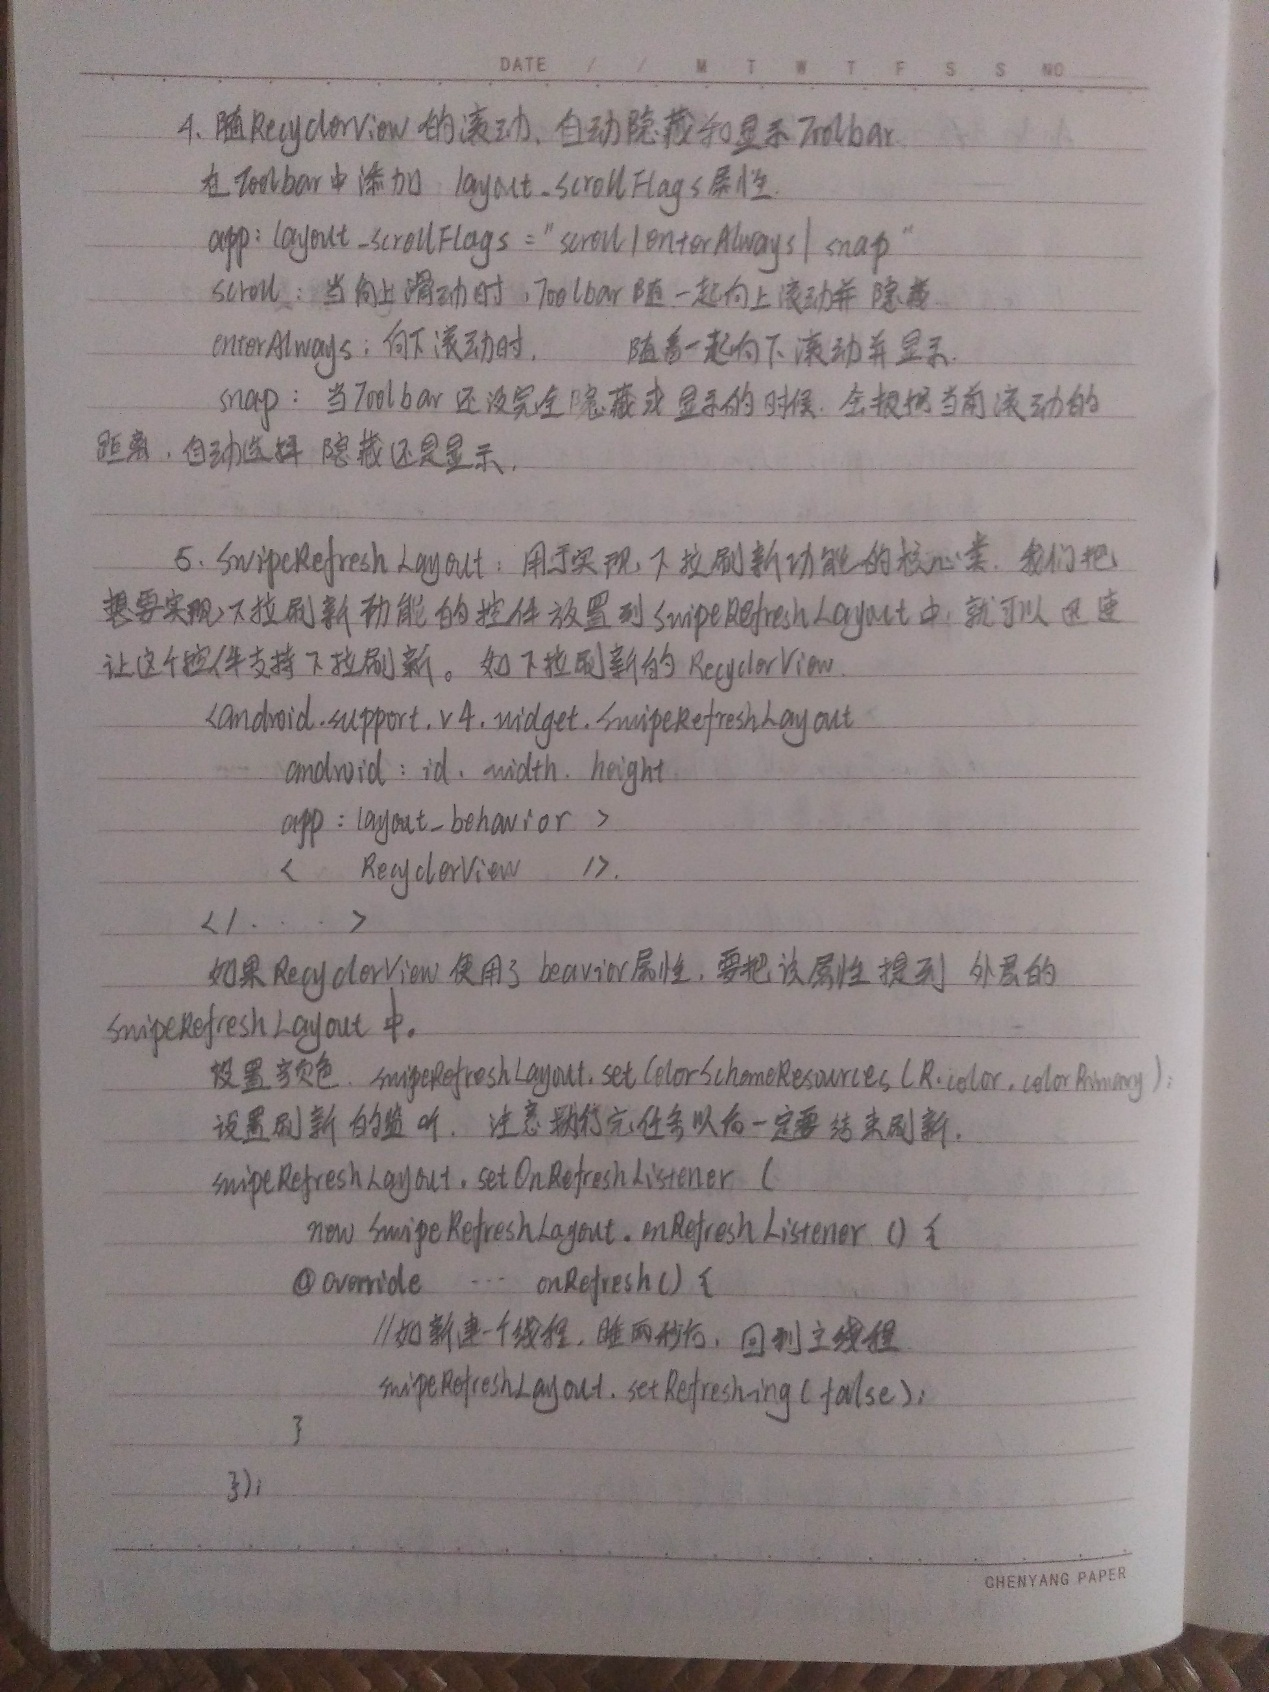 DATE / / M T W T F S S NO
4、随RecyclerView的滚动、自动隐藏和显示Toolbar
在Toolbar中添加 layout_scrollFlags属性.
app:layout_scrollFlags="scroll|enterAlways|snap"
scroll:当向上滑动时,Toolbar随一起向上滚动并隐藏
enterAlways:向下滚动时, 随着一起向下滚动并显示.
snap:当Toolbar还没完全隐藏或显示的时候.会根据当前滚动的
距离,自动选择隐藏还是显示.
5、SwipeRefreshLayout:用于实现下拉刷新功能的核心类.我们把
想要实现下拉刷新功能的控件放置到SwipeRefreshLayout中,就可以迅速
让这个控件支持下拉刷新。如下拉刷新的RecyclerView.
<android.support.v4.widget.SwipeRefreshLayout
android:id. width. height
app:layout_behavior >
< RecyclerView />.
</ . . . >
如果RecyclerView使用了beavior属性,要把该属性提到 外层的
SwipeRefreshLayout中。
设置颜色. swipeRefreshLayout.setColorSchemeResources(R.color.colorPrimary);
设置刷新的监听. 注意 完任务以后一定要结束刷新.
swipeRefreshLayout.setOnRefreshListener (
new SwipeRefreshLayout.onRefreshListener () {
@override ... onRefresh() {
//如新建一个线程,睡两秒后,回到主线程
swipeRefreshLayout.setRefreshing(false);
}
});
CHENYANG PAPER